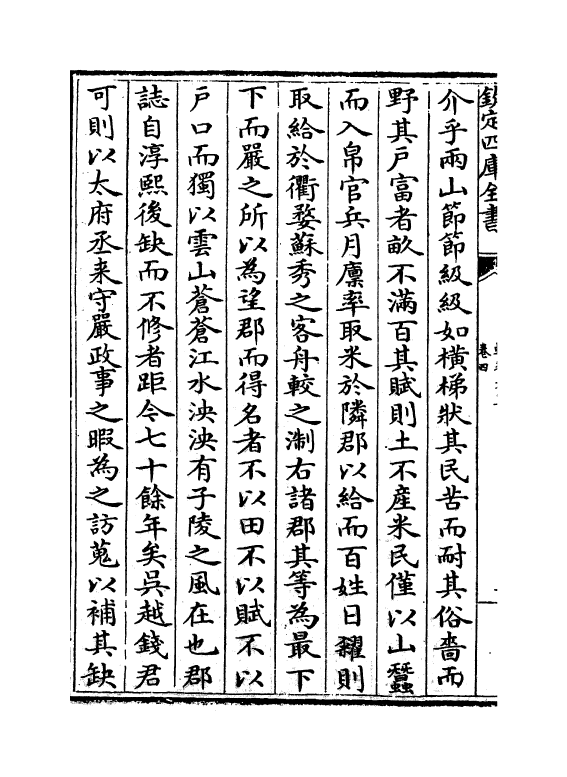 欽定四庫全書
卷四
介乎兩山節節級級如横梯狀其民苦而耐其俗嗇而
野其戶富者畝不滿百其賦則土不産米民僅以山蠶
而入帛官兵月廪率取米於隣郡以給而百姓日糴則
取給於衢婺蘇秀之客舟較之淛右諸郡其等為最下
下而嚴之所以為望郡而得名者不以田不以賦不以
戶口而獨以雲山蒼蒼江水泱泱有子陵之風在也郡
誌自淳熙後缺而不修者距今七十餘年矣吳越錢君
可則以太府丞来守嚴政事之暇為之訪蒐以補其缺